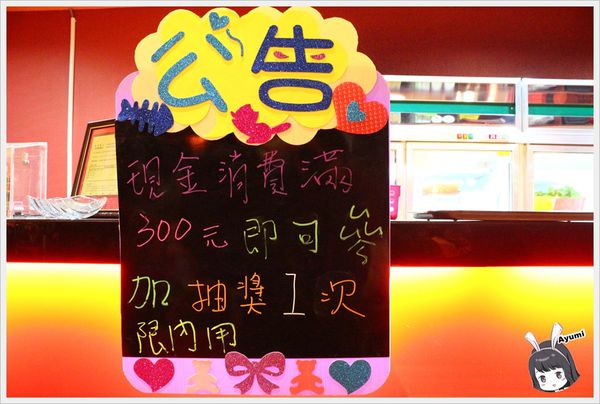 公告
現金消費滿
300元即可參
加抽獎1次
限內用
Ayumi